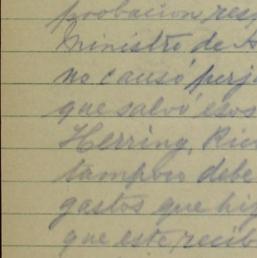 probación resp
Ministro de H
no causó perj
que salvó esos
Herring, Ric
tampoco debe
gastos que hiz
que este, recib